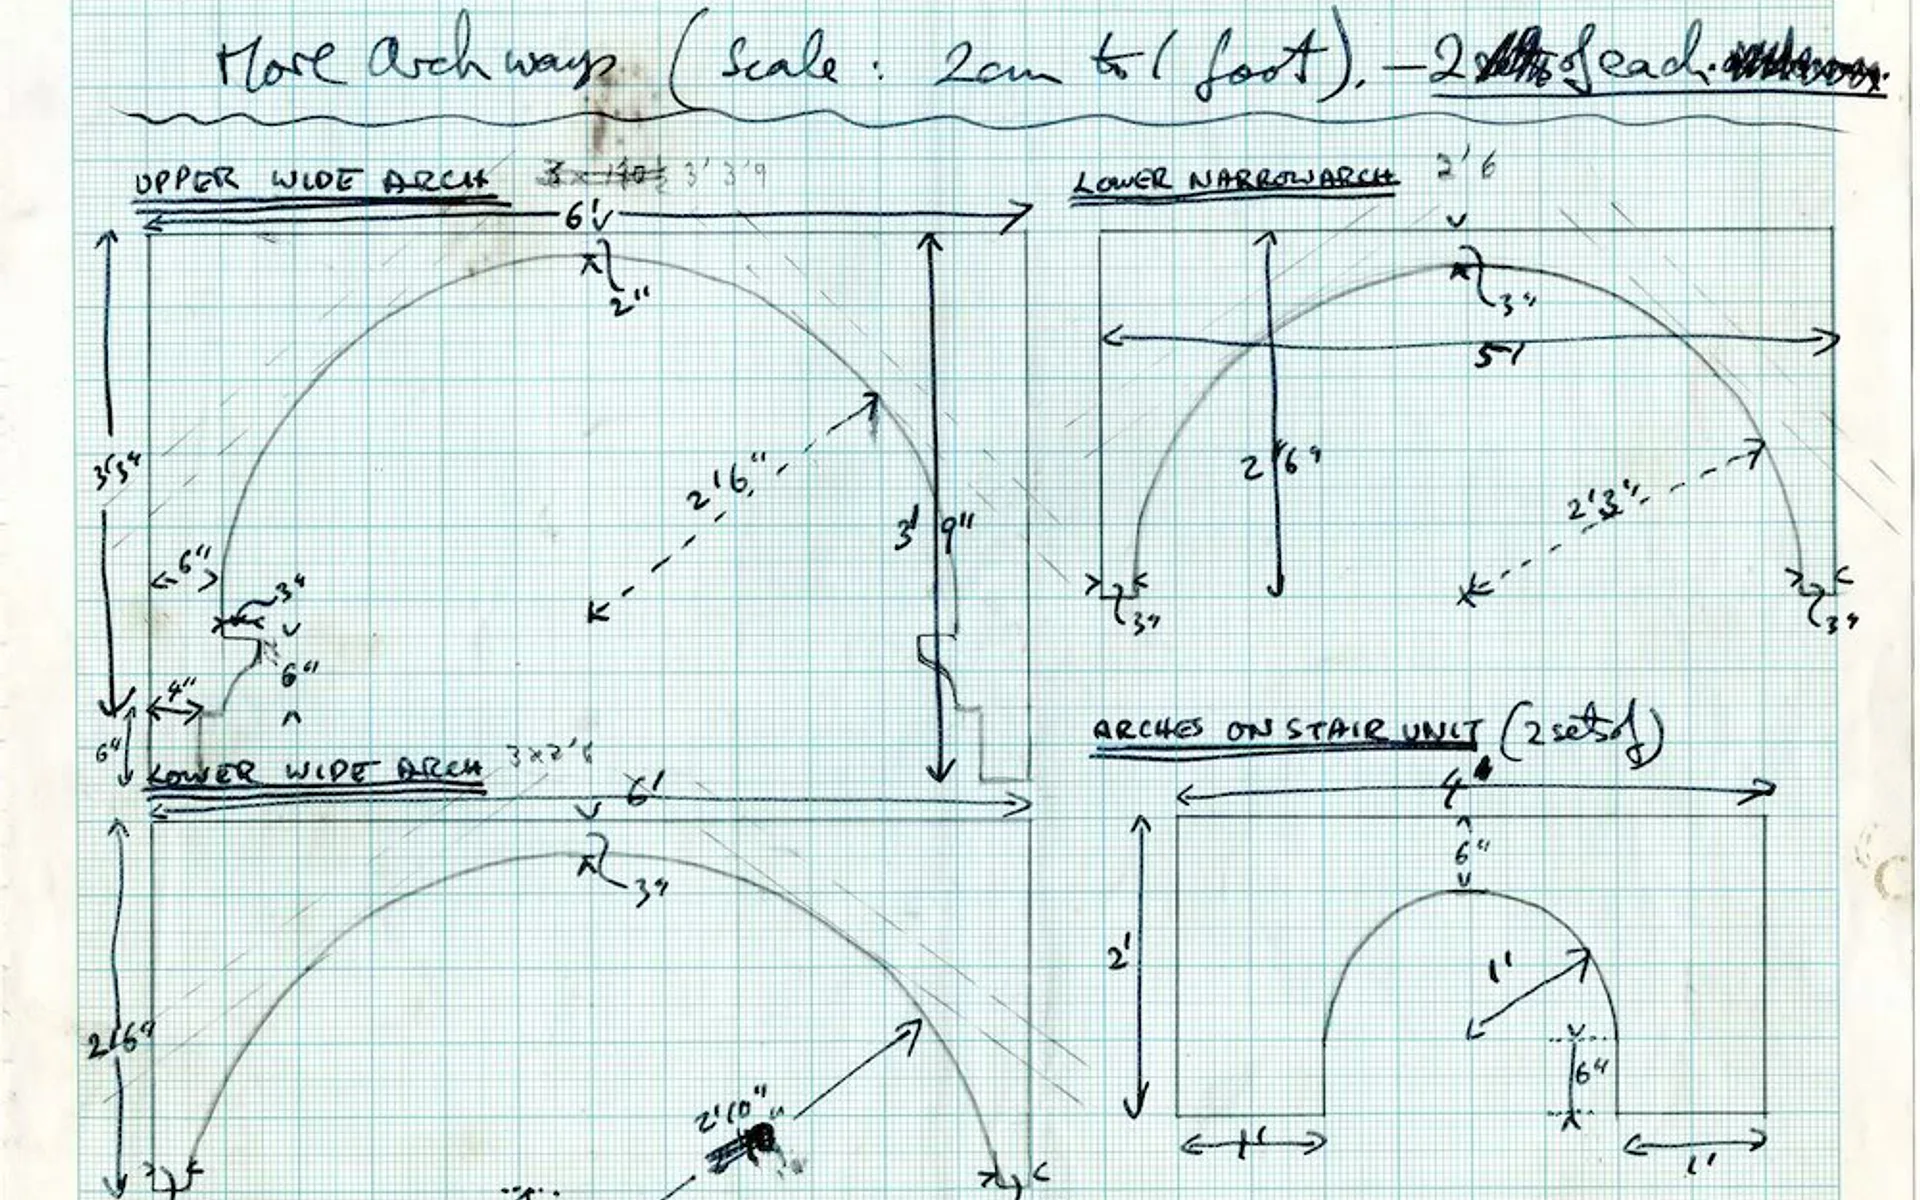 More Archways (Scale: 2cm to 1 foot). – 2 of each.
UPPER WIDE ARCH 3' 3'9
6'
2"
3'3"
2'6"
3' 9"
6"
3"
6"
4"
6"
LOWER NARROW ARCH 2'6
3"
5'
2'6"
2'3"
3"
3"
LOWER WIDE ARCH 3x2'6
6'
3"
2'6"
2'10"
ARCHES ON STAIR UNIT (2 sets of)
4'
6"
2'
1'
6"
1'
1'